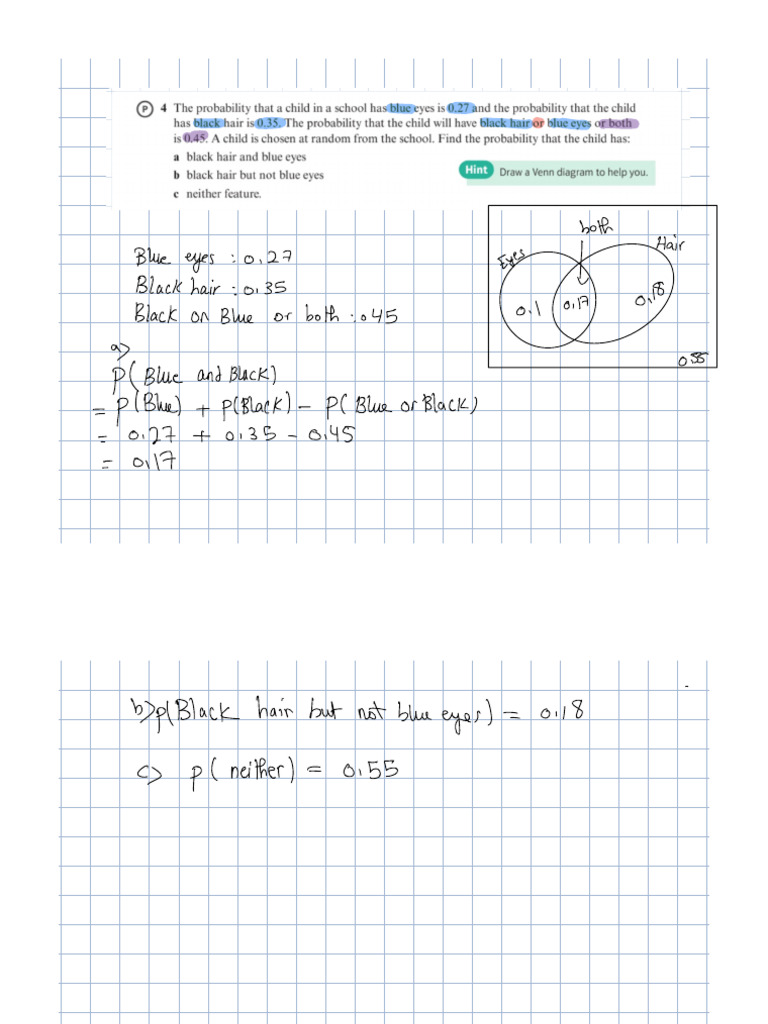 P 4 The probability that a child in a school has blue eyes is 0.27 and the probability that the child
has black hair is 0.35. The probability that the child will have black hair or blue eyes or both
is 0.45. A child is chosen at random from the school. Find the probability that the child has:
a black hair and blue eyes
b black hair but not blue eyes
c neither feature.
Hint Draw a Venn diagram to help you.
both
Eyes
Hair
0.1
0.17
0.18
0.55
Blue eyes : 0.27
Black hair : 0.35
Black or Blue or both : 0.45
a)
P(Blue and Black)
= P(Blue) + P(Black) - P(Blue or Black)
= 0.27 + 0.35 - 0.45
= 0.17
b) p(Black hair but not blue eyes) = 0.18
c) p(neither) = 0.55